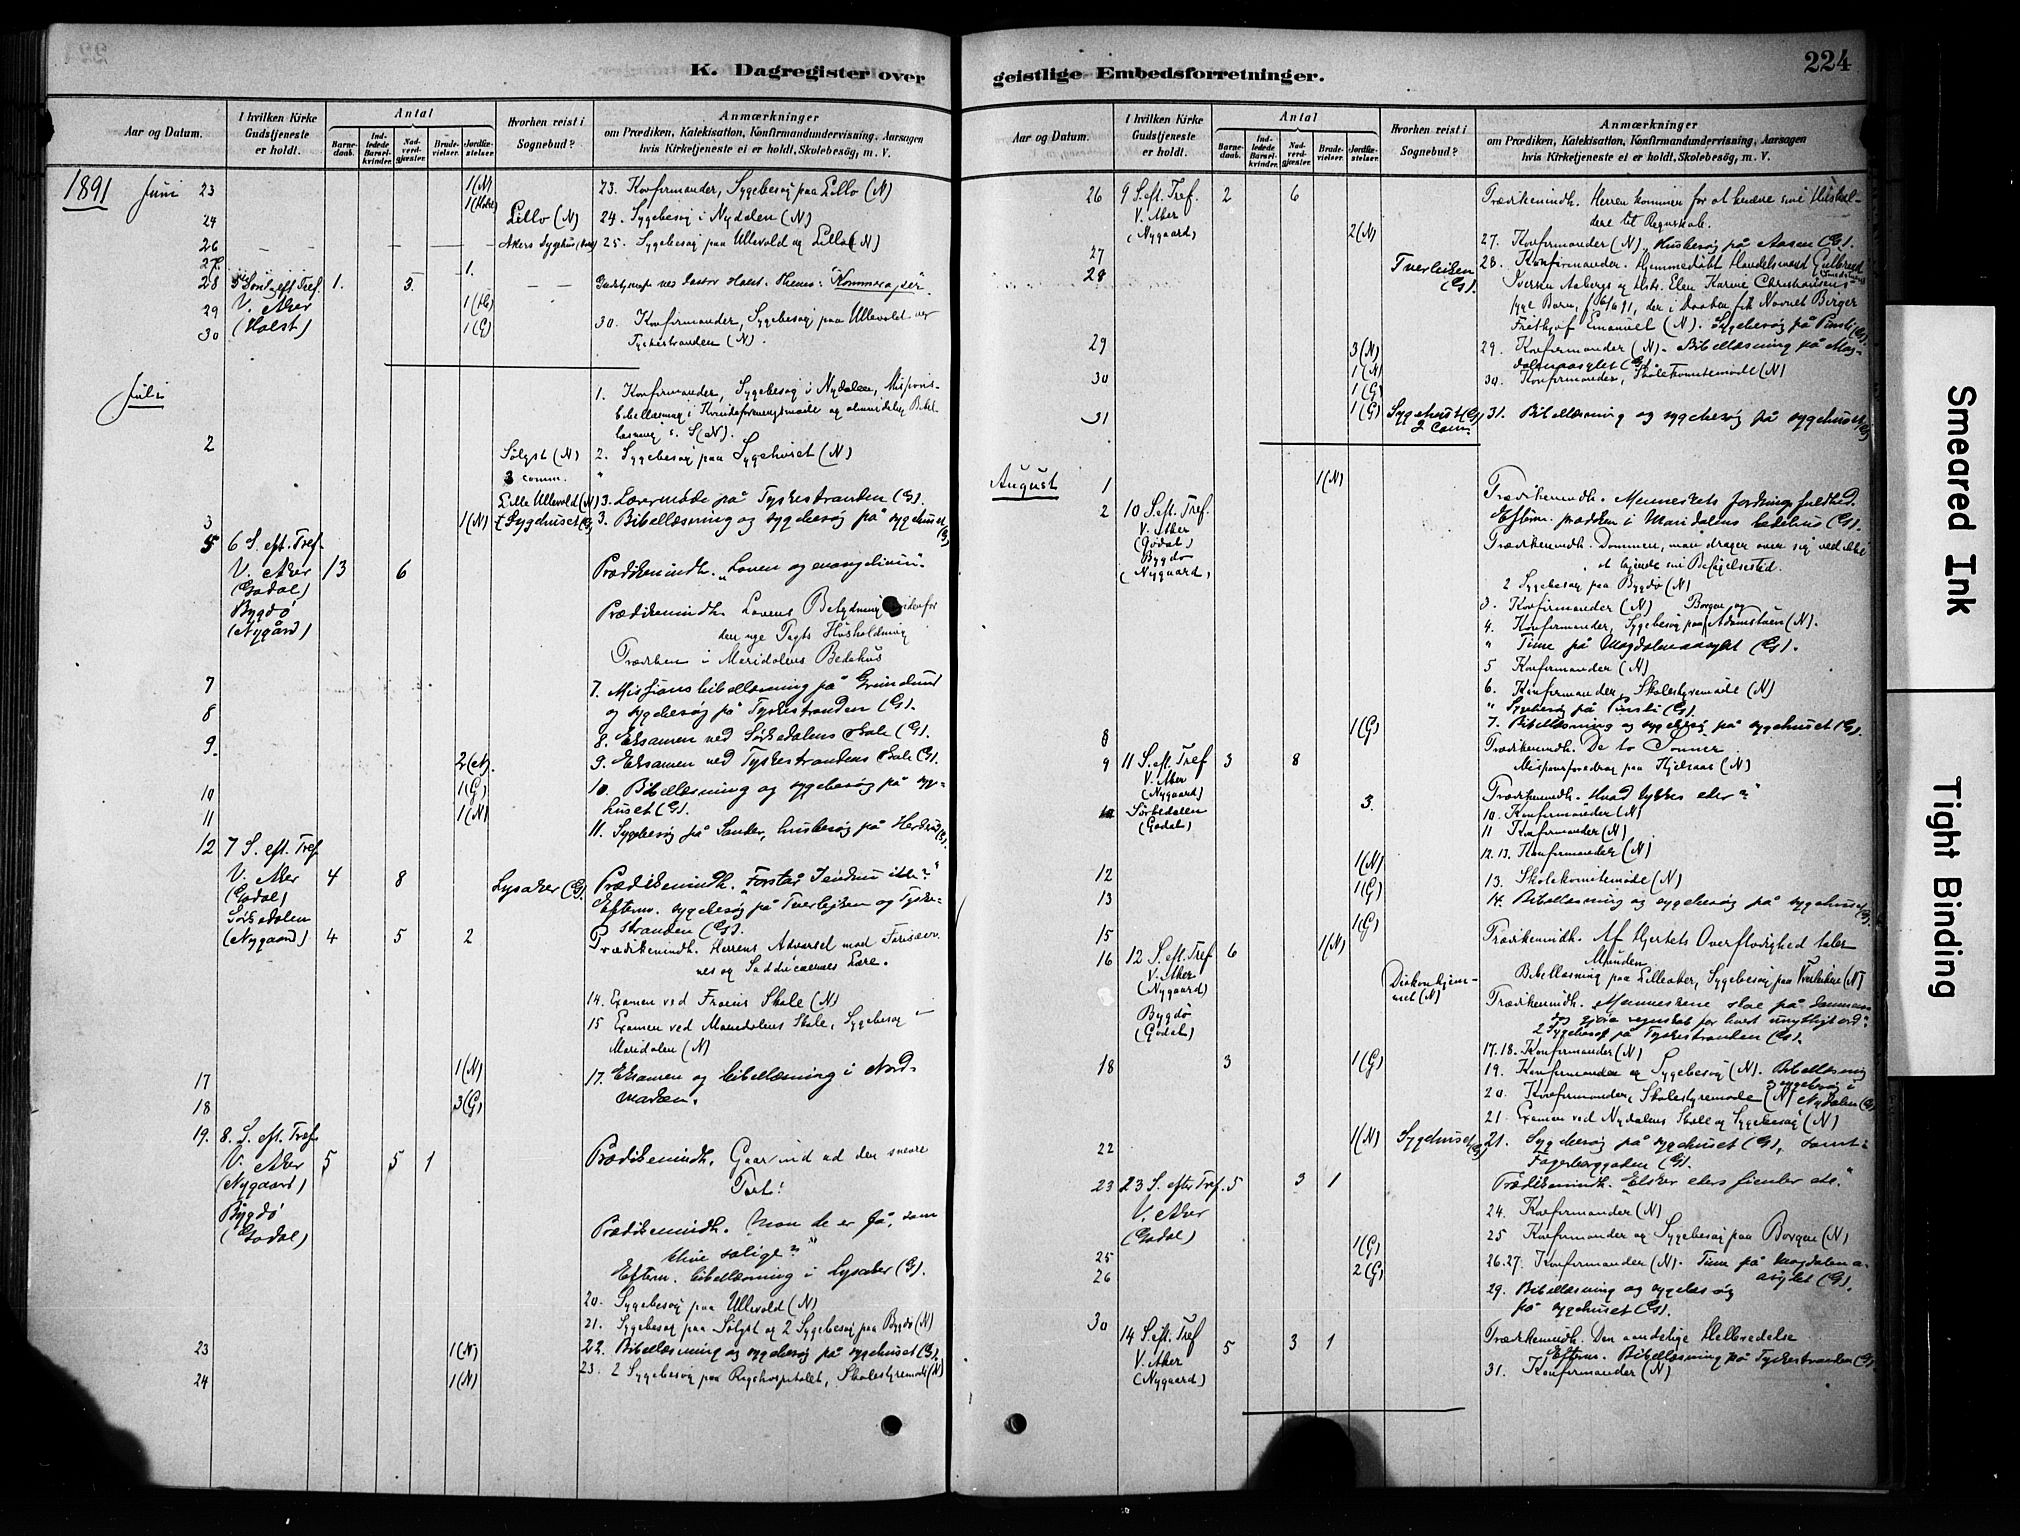 K. Dagregister over
geistlige Embedsforretninger.
224
Aar og Datum.
I hvilken Kirke Gudstjeneste er holdt.
Antal
Barnedaab.
Indledede Barselkvinder.
Nadverdgjester.
Brudevielser.
Jordfæstelser.
Hvorhen reist i Sognebud?
Anmærkninger
om Prædiken, Katekisation, Konfirmandundervisning, Aarsagen
hvis Kirketjeneste ei er holdt, Skolebesög, m. V.
1891 Juni 23 1(N) 23. Konfirmander, Sygebesøg paa Lillo (N)
24 Lillo (N) 24. Sygebesøg i Nydalen (N)
26 25. Sygebesøg paa Ullevold og Lillo (N)
27. 1.
28 5 Sønd. eft. Tref. 1. 3.
29 V. Aker
30 (Holst) 1(G) 30. Konfirmander, Sygebesøg paa Ullevold og
Tyskestranden (N).
Juli
1. Konfirmander, Sygebesøg i Nydalen, Missions-
2 Sølyst (N) 2. Sygebesøg paa Sygehuset (N)
3 comm.
Lille Ullevold (N) 3. Lærermøde på Tyskestranden (G).
3 1(N) Sygehuset (G) 3. Bibellæsning og sygebesøg på sygehuset (G)
5 6 S. eft. Tref.
V. Aker 13 6 Prædikenindh. "Loven og evangelium"
(Godal)
Bygdö Prædikenindh. Lovens Betydning
(Nygård) den nye Pagts Husholdning
Prædiken i Maridalens Bedehus
7 7. Missionsbibellæsning på Grünelund
og sygebesøg på Tyskestranden (G).
8 8. Eksamen ved Sørkedalens skole (G).
9. 2(N). 9. Eksamen ved Tyskestrandens skole (G).
10 1(G) 10. Bibellæsning og sygebesøg på syg-
huset (G).
11 1(N) 11. Sygebesøg på Sanker, husbesøg på
12 7 S. eft. Tref.
V. Aker 4 8 Lysaker (G). Prædikenindh. "Forstår I endnu ikke?"
(Godal) Efterm. sygebesøg på Tverlejken og Tyske-
Sørkedalen stranden (G).
(Nygaard) 4 5 2 Prædikenindh. Herrens Advarsel mod Farisæer-
nes og Sadducæernes Lære.
14. Examen ved Frøens Skole (N)
15 Examen ved Maridalens Skole, Sygebesøg i
Maridalen (N)
17 1(N) 17. Eksamen og bibellæsning i Nord-
18 3(G) marken.
19. 8. S. eft. Tref.
V. Aker 5 5 1 Prædikenindh. Gaar ind ad den snevre
(Nygaard) Port!
Bygdö
(Godal) Prædikenindh. "Mon de er få, som
blive salige?"
Efterm. bibellæsning i Lysaker (G).
20. Sygebesøg paa Ullevold (N)
21. Sygebesøg paa Sølyst og 2 Sygebesøg paa Bygdö (N)
23 1(N) 22. Bibellæsning og sygebesøg på sygehuset (G).
24 1(N) 23. 2 Sygebesøg paa Rigshospitalet, Skolestyremøde (N)
Aar og Datum.
I hvilken Kirke Gudstjeneste er holdt.
Antal
Barnedaab.
Indledede Barselkvinder.
Nadverdgjester.
Brudevielser.
Jordfæstelser.
Hvorhen reist i Sognebud?
Anmærkninger
om Prædiken, Katekisation, Konfirmandundervisning, Aarsagen
hvis Kirketjeneste ei er holdt, Skolebesög, m. V.
26 9 S. eft. Tref. 2 6 Prædikenindh. Herren kommer for at kræve sine Hushol-
V. Aker dere til Regnskab.
(Nygaard) 2(N) 27. Konfirmander (N), Husbesøg på Aasen (G).
27
28 Tverleiken (G). 28. Konfirmander. Hjemmedøbt Handelsmand
Iversen Aabergs og Hstr. Elen Karine Christiansens
Barn, f. 16/6 91, der i Daaben fik Navnet Birger
Frithjof Emanuel (N). Sygebesøg på
29 3(N) 29. Konfirmander (N). Bibellæsning på Mag-
dalenaasylet (G).
30 1(N) 30. Konfirmander, Skolekomitemøde (N)
1(G)
31 1(G) Sygehuset (G) 31. Bibellæsning og sygebesøg på sygehuset (G)
2 Com.
August 1 1(N)
2 10 S. eft. Tref. Prædikenindh. Menneskets
V. Aker Efterm. prædiken i Maridalens bedehus (G).
(Godal) Prædikenindh. Dommen, man drager over sig ved ikke
Bygdö at kjende sin Besøgelsestid.
(Nygaard) 2 Sygebesøg paa Bygdö (N)
3. Konfirmander (N) Borgen og
4. Konfirmander, Sygebesøg paa Adamstuen (N).
" Time på Magdalenaasylet (G).
5 Konfirmander (N)
6. Konfirmander, Skolestyremøde (N)
" Sygebesøg på
8 1(G) 7. Bibellæsning og sygebesøg på sygehuset (G).
9 11 S. eft. Tref. 3 8 Prædikenindh. De to Sønner
V. Aker Missionsforedrag paa Kjelsaas (N)
(Nygaard) 3. Prædikenindh. "Hvad tykkes eder?"
Sørkedalen 10. Konfirmander (N)
(Godal) 11 Konfirmander (N)
12 1(N) 12. 13. Konfirmander (N)
13 1(G) 13. Skolekomitemøde (N)
14. Bibellæsning og sygebesøg på sygehuset (G).
15 1(G)
16 12 S. eft. Tref. 6 1(N) Prædikenindh. Af Hjertets Overflødighed taler
V. Aker Munden
(Nygaard) Bibellæsning paa Lilleaker, Sygebesøg paa Tverleiken (N)
Bygdö Prædikenindh. Menneskene skal på dommens
(Godal) dag gjøre regnskab for hvert unyttigt ord".
2 Sygebesøg på Tyskestranden (G).
17. 18. Konfirmander (N)
18 3 1(G) 19. Konfirmander og Sygebesøg (N). Bibellæsning
20. Konfirmander, Skolestyremøde (N) Nydalen (G)
21. Examen ved Nydalens Skole og Sygebesøg (N)
22 1(N) Sygehuset (G) 21. Sygebesøg på sygehuset (G), samt i
Fagerborggaden (G).
23 23 S. efter Tref. 5 3 1 Prædikenindh. "Elsker eders fiender etc."
V. Aker 24. Konfirmander (N)
(Godal) 25 Konfirmander og Sygebesøg paa Borgen (N)
25 1(G) 26. 27. Konfirmander (N). Time på Magdalena-
26 2(G) asylet (G).
29. Bibellæsning og sygebesøg
på sygehuset (G).
30 14 S. eft. Tref. 5 3 1 Prædikenindh. Den aandelige Helbredelse
V. Aker Efterm. Bibellæsning på Tyskestranden (G)
(Nygaard) 31. Konfirmander (N)
Smeared Ink
Tight Binding